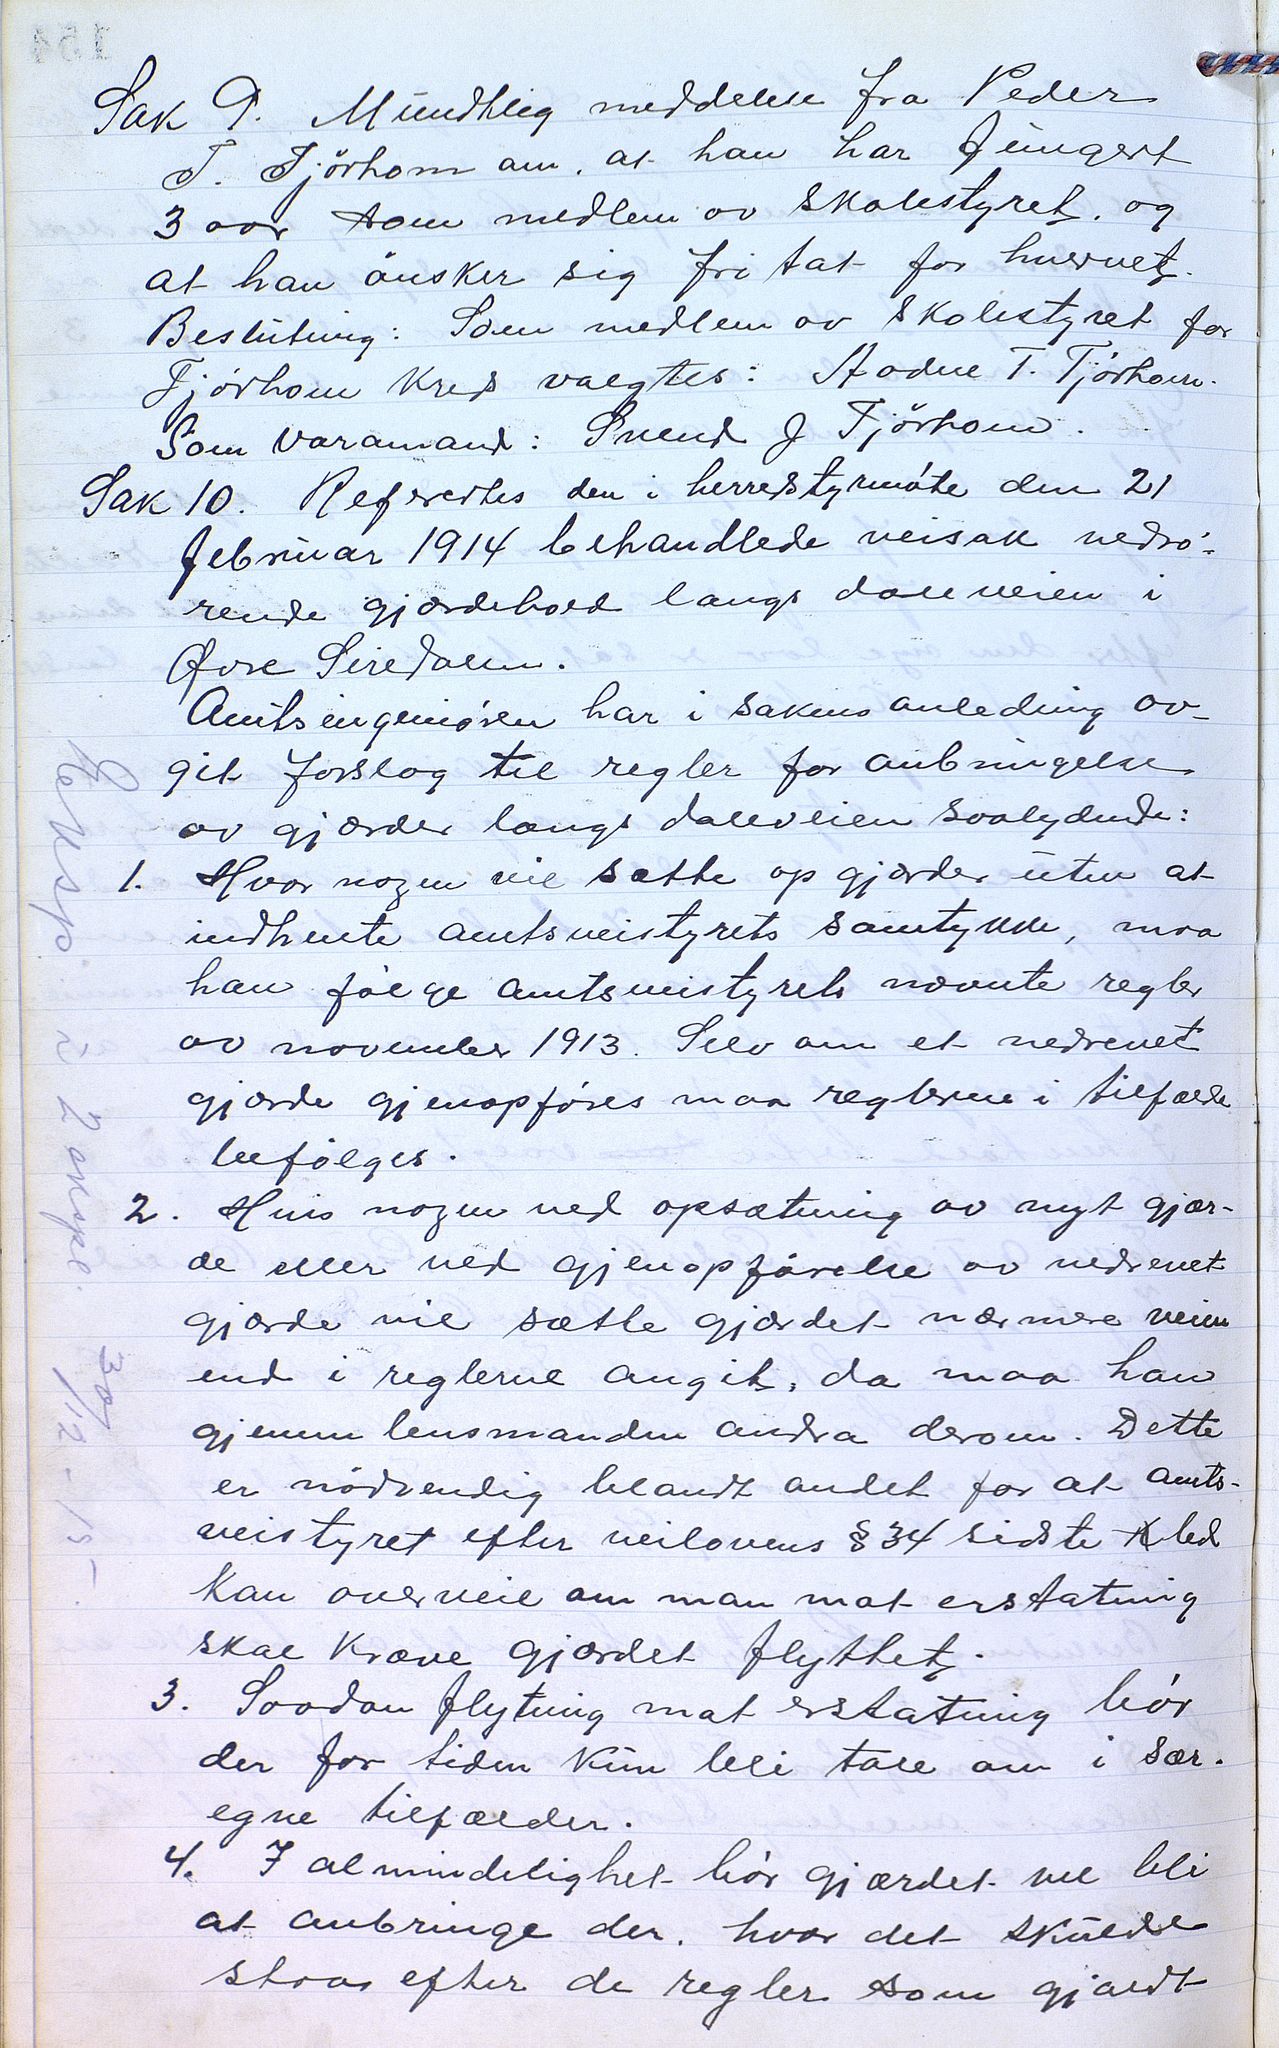 Sak 9. Mundtlig meddelelse fra Peder
T. Tjörhom om, at han har fungert
3 aar som medlem av skolestyret, og
at han önsker sig fritat for hvervet.
Beslutning: Som medlem av skolestyret for
Tjórhom kreds valgtes: Aadne T. Tjórhom.
Som varamand: Svend J Tjörhom.
Sak 10. Refertes den i herredstyrmóte den 21
februar 1914 behandlede veisak vedró-
rende gjærdehold langs dalveien i
Øvre Siredalen.
Amtsingenióren har i sakens anledning av-
git forslag til regler for anbringelse
av gjærder langs dalveien saalydende:
1. Hvor nogen vil sætte op gjærder uten at
indhente amtsveistyrets samtykke, maa
han fólge amtsveistyrets nævnte regler
av november 1913. Selv om et nedrevet
gjærde gjenopfóres maa reglerne i tilfælde
befólges.
2. Hvis nogen ved opsætning av nyt gjær-
de eller ved gjenopfórelse av nedrevet
gjærde vil sætte gjærdet nærmere veien
end i reglerne angit, da maa han
gjennem lensmanden andra derom. Dette
er nódvendig blandt andet for at amts-
veistyret efter veilovens § 34 sidste led
kan overveie om man mot erstatning
skal kræve gjærdet flyttet.
3. Saadan flytning mot erstatning bór
der for tiden kun bli tale om i sær-
egne tilfælder.
4. I almindelighet bór gjærdet vel bli
at anbringe der, hvor det skulde
staa efter de regler som gjaldt
2 30/12-15-